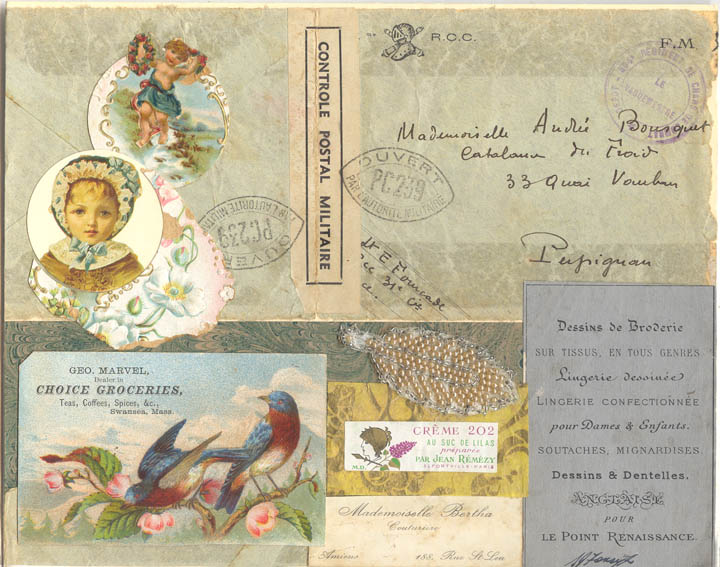 R.C.C.
F.M
CONTROLE POSTAL MILITAIRE
OUVERT
PC239
PAR L'AUTORITE MILITAIRE
LE
Mademoiselle Andrée Bousquet
Catalana du Froid
33 Quai Vauban
Perpignan
OUVERT
PC239
PAR L'AUTORITE MILITAIRE
GEO. MARVEL,
Dealer in
CHOICE GROCERIES,
Teas, Coffees, Spices, &c.,
Swansea, Mass.
CRÈME 202
AU SUC DE LILAS
préparée
PAR JEAN RÉMÉZY
ALFORTVILLE-PARIS
M.D.
Mademoiselle Bertha
Couturière
Amiens 188, Rue St-Leu
Dessins de Broderie
SUR TISSUS, EN TOUS GENRES
Lingerie dessinée
LINGERIE CONFECTIONNÉE
pour Dames & Enfants.
SOUTACHES, MIGNARDISES
Dessins & Dentelles,
ANGLAISE
POUR
LE POINT RENAISSANCE.